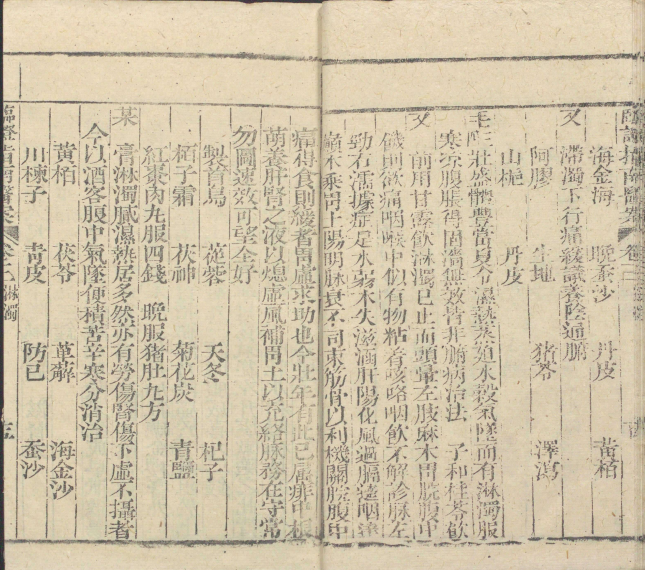 臨證指南醫案 卷三
海金海 晚蚕沙 丹皮 黃栢
又 滯濁下行痛緩議養陰通腑
阿膠 生地 猪苓 澤瀉
山梔 丹皮
毛 壯盛體豐當夏令濕熱蒸迫水穀氣墜而有淋濁服
寒凉腹脹得固濇無效皆非腑病治法 子和桂苓飲
又 前用甘露飲淋濁已止而頭暈左肢麻木胃脘腹中
饑則欲痛咽喉中似有物粘着咳咯咽飲不解診脉左
勁右濡據症是水弱木失滋涵肝陽化風過膈遶咽達
巔木乘胃土陽明脉衰不司束筋骨以利機關脘腹中
痛得食則緩者胃虛求助也今壯年有此已屬痱中根
萌養肝腎之液以熄虛風補胃土以充絡脉務在守常
勿圖速效可望全好
製首烏 蓯蓉 天冬 杞子
栢子霜 茯神 菊花炭 青鹽
紅棗肉丸服四錢 晚服猪肚丸方
某 膏淋濁膩濕熱居多然亦有勞傷腎傷下虛不攝者
今以酒客腹中氣墜便積苦辛寒分消治
黃栢 茯苓 萆薢 海金沙
川楝子 青皮 防己 蚕沙
臨證指南醫案 卷三 淋濁